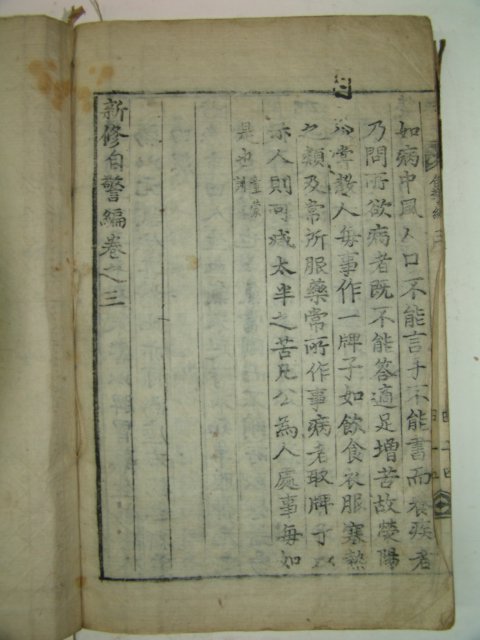 如病中風人口不能言手不能書而養疾者
乃問所欲病者旣不能答適足增苦故滎陽
公嘗敎人每事作一牌子如飮食衣服寒熱
之類及常所服藥常所作事病者取牌子以
示人則可减太半之苦凡公爲人處事每如
是也 童蒙訓
新修自警編卷之三